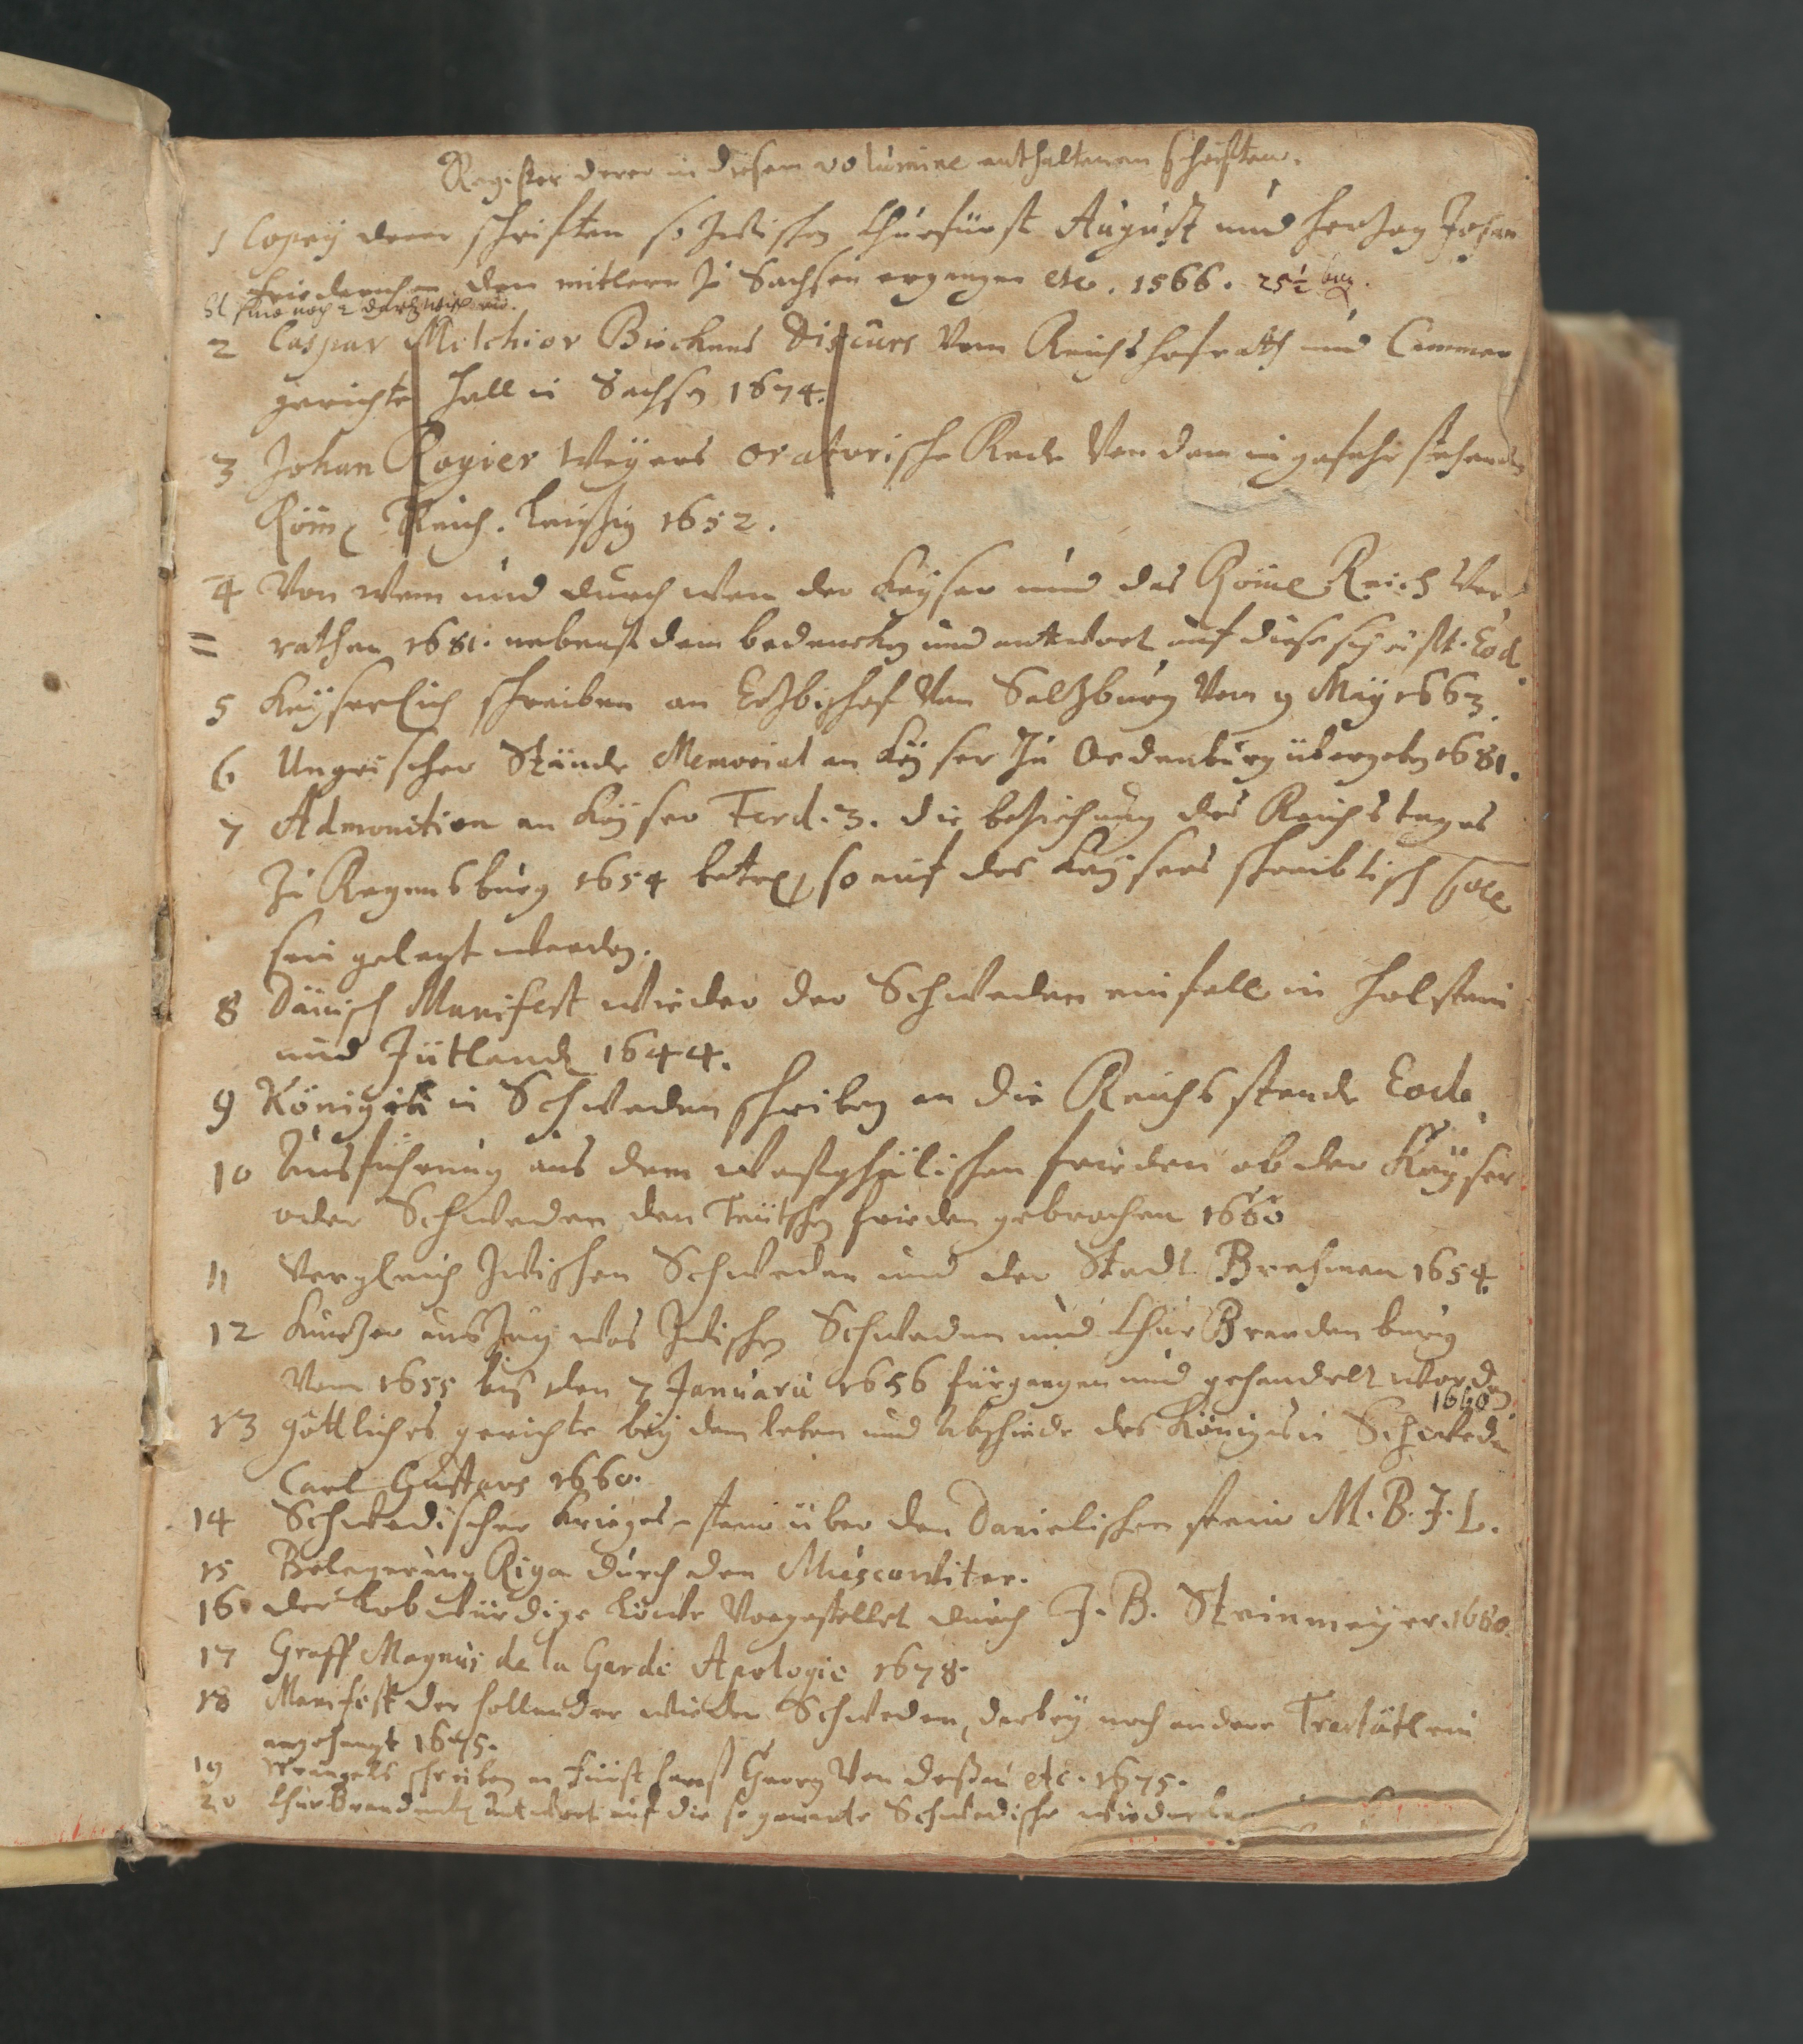 Register derer in diesem volumine enthaltenen schrifften.
1 Copey derer schrifften so zwischen Churfürst August und Hertzog Johan
Friederichen dem mitlern zu Sachsen ergangen etc. 1566. 25½ bog.
2 Caspar Melchior Bieckens Discurs vom Reichshofrath und Cammer
gerichte Hall in Sachsen 1674.
3 Johan Rogier Weyers oratorische Rede Von dem in gefahr stehenden
Röm. Reich. Leipzig 1652.
4 Von wem und durch wen der Keyser und das Röm. Reich Ver
rathen 1681. nebenst dem bedencken und antwort auf diese schrifft. Eod.
5 Keyserlich schreiben an Ertzbischof von Saltzburg Vom 9 May 1663.
6 Ungrischer Stände Memorial an Keyser zu Oedenburg übergeben 1681.
7 Admonition an Keyser Ferd. 3. die beziehung des Reichstages
zu Regensburg 1654 betr. so auf des Keysers schreibtisch solle
sein gelegt worden.
8 Dänisch Manifest wieder der Schweden einfall in Holstein
und Jütland 1644.
9 Königin in Schweden schreiben an die Reichs stende Eod.
10 Ausführung aus dem Westphälischen frieden ob der Käyser
oder Schweden den Teutschen frieden gebrochen 1660
11 Vergleich zwischen Schweden und der Stadt Brehmen 1654.
12 Kurtzer auszug was zwischen Schweden und Chur Brandenburg
Vom 1655 biß den 7 Januarii 1656 fürgangen und gehandelt worden
1660.
13 göttliches gerichte bey dem leben und Abschiede des Königs in Schweden
Carl Gustavs 1660.
14 Schwedischer Krieges-stein über den Danielischen stein M. B. J. L.
15 Belagerung Riga durch den Muscowiter.
16 der Lobwürdige Löwe Vorgestellet durch J. B. Steinmeyer. 1660.
17 Graff Magnus de la Gardi Apologie 1678.
18 Manifest der Hollender wieder Schweden, darbey noch andere Tractätlein
angehengt 1675.
19 Wrangels schreiben an Fürst Hanß Georg Von Deßau etc. 1675.
20 ChurBrandenb. Antwort auf die so genante Schwedische